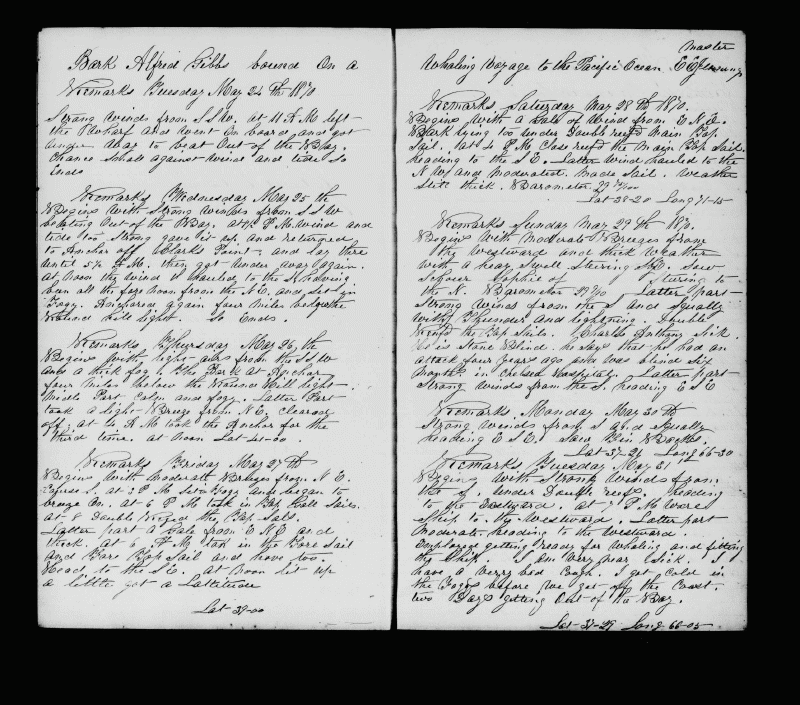 Bark Alfred Gibbs bound On a
Remarks Tuesday May 24 Th 1870
Strong winds from S S W. at 11 A M left
the Wharf and went on board and got
under way to beat Out of the Bay.
Chance small against wind and tide So
Ends
Remarks Wednesday May 25 th
Begins with Strong winds from S S W
beating Out of the Bay. P M wind and
tide too Strong gave it up and returned
to Anchor off Clarks Point and lay there
until 5 A M. then got under way again.
at Noon the wind hauled to the S, having
been all the fore noon from the N E. and set in
Foggy. Anchored again four miles below the
light. So Ends.
Remarks Thursday May 26 th
Begins with light airs from the S S W
and a thick fog. The Bark at Anchor
four miles below the light.
Middle Part Calm and fogy. Latter Part
took a light Breeze from N E. Cleared
off, at 4 A M took the Anchor for the
third time. at Noon Lat 41-00.
Remarks Friday May 27 th
Begins with moderate Breezes from N E.
at 3 P M Set Fogg and began to
breeze On. at 6 P M took in Top Gall Sails.
at 8 Double the Top Sails.
Latter part a Gale from E N E and
thick at 6 A M took in the Fore Sail
and Fore Top Sail and hove too
Head to the S E. at Noon lit up
a little got a Lattitude
Lat 39-00
Master
Whaling Voyage to the Pacific Ocean E E
Remarks Saturday May 28 Th 1870.
Begins with a Gale of wind from E N E.
Bark lying too under Double reefd Main Top
Sail. at 4 P M Close reefd the Main Top Sail.
heading to the S E. Latter wind hauled to the
N W and moderated. Made Sail. Weather
Still thick. Barometer 29
Lat 38-20 Long 71-15
Remarks Sunday May 29 Th 1870.
Begins with Moderate Breezes from
the Westward and thick Weather
with a heavy Swell Stering S E. Saw
Schoner Sophie Stering to
the N. Barometer 29 Latter part
Strong winds from the S and Squally
with Thunder and lightning. Double
Reefd the Top Sails. Charles Anthony Sick.
He is Stone Blind. he says that he had an
attack four years ago and was blind Six
months in Chelsea Hospital. Latter part
Strong winds from the S. heading E S E
Remarks, Monday May 30 Th
Strong winds from S and Squally
heading E S E. Saw Fin Backs.
Lat 37-21 Long 66-30
Remarks Tuesday May 31
Begins with Strong winds from
the S. under Double reefs, heading
to the Eastward. at 7 P M Wore
Ship to the Westward. Latter part
Moderate heading to the Westward.
Employed getting ready for Whaling and fitting
the Ship. I am very near Sick. I
have a very bad Cough. I got Cold in
the Foggs before we got off the Coast.
two Days getting Out of the Bay.
Lat 37-29 Long 66-05